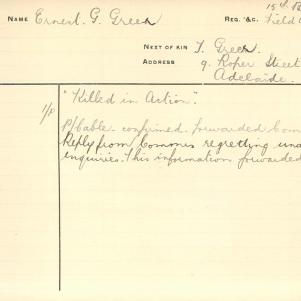 NAME Ernest. G. Green
REG. &C. 15th
Field
NEXT OF KIN T. Green.
ADDRESS 9. Roper Street
Adelaide.
"Killed in Action".
1/P
P/Cable. confirmed. forwarded Com
Reply from Commrs regretting una
enquiries. This information forwarded